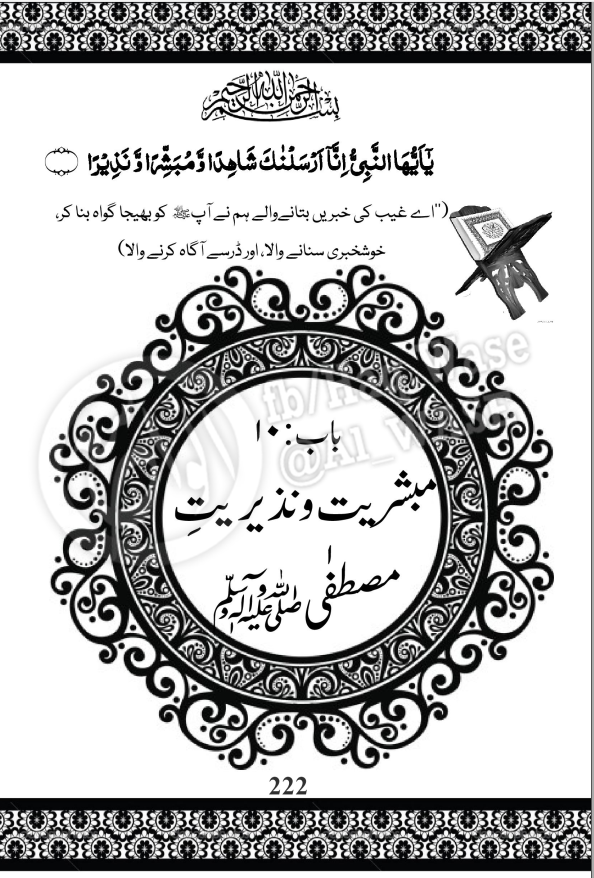 بسم اللہ الرحمن الرحیم
یٰۤاَیُّهَا النَّبِیُّ اِنَّاۤ اَرْسَلْنٰكَ شَاهِدًا وَّ مُبَشِّرًا وَّ نَذِیْرًا
("اے غیب کی خبریں بتانے والے ہم نے آپ ﷺ کو بھیجا گواہ بنا کر،
خوشخبری سنانے والا، اور ڈر سے آگاہ کرنے والا)
باب: ۱۰
مبشریت و نذیریتِ
مصطفٰی صلی اللہ علیہ وآلہ وسلم
222